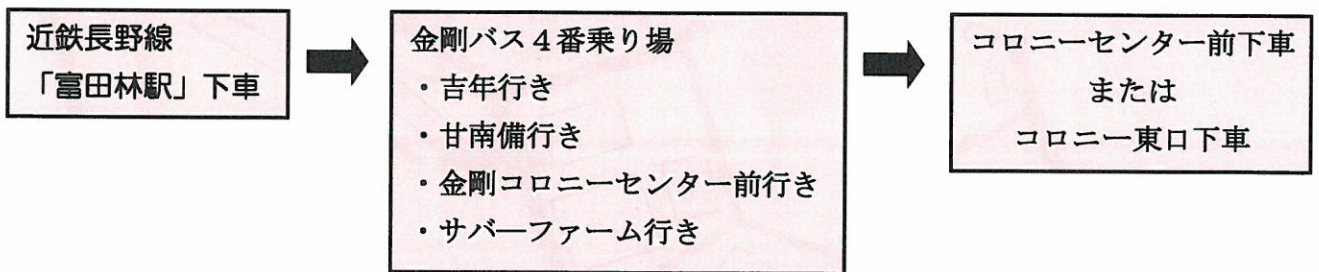 近鉄長野線
「富田林駅」下車
金剛バス４番乗り場
・吉年行き
・甘南備行き
・金剛コロニーセンター前行き
・サバーファーム行き
コロニーセンター前下車
または
コロニー東口下車